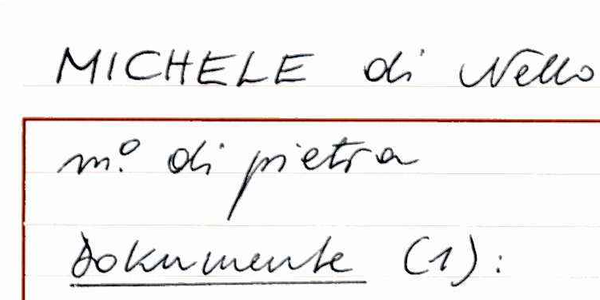 MICHELE di Nello
m.º di pietra
Dokumente (1):